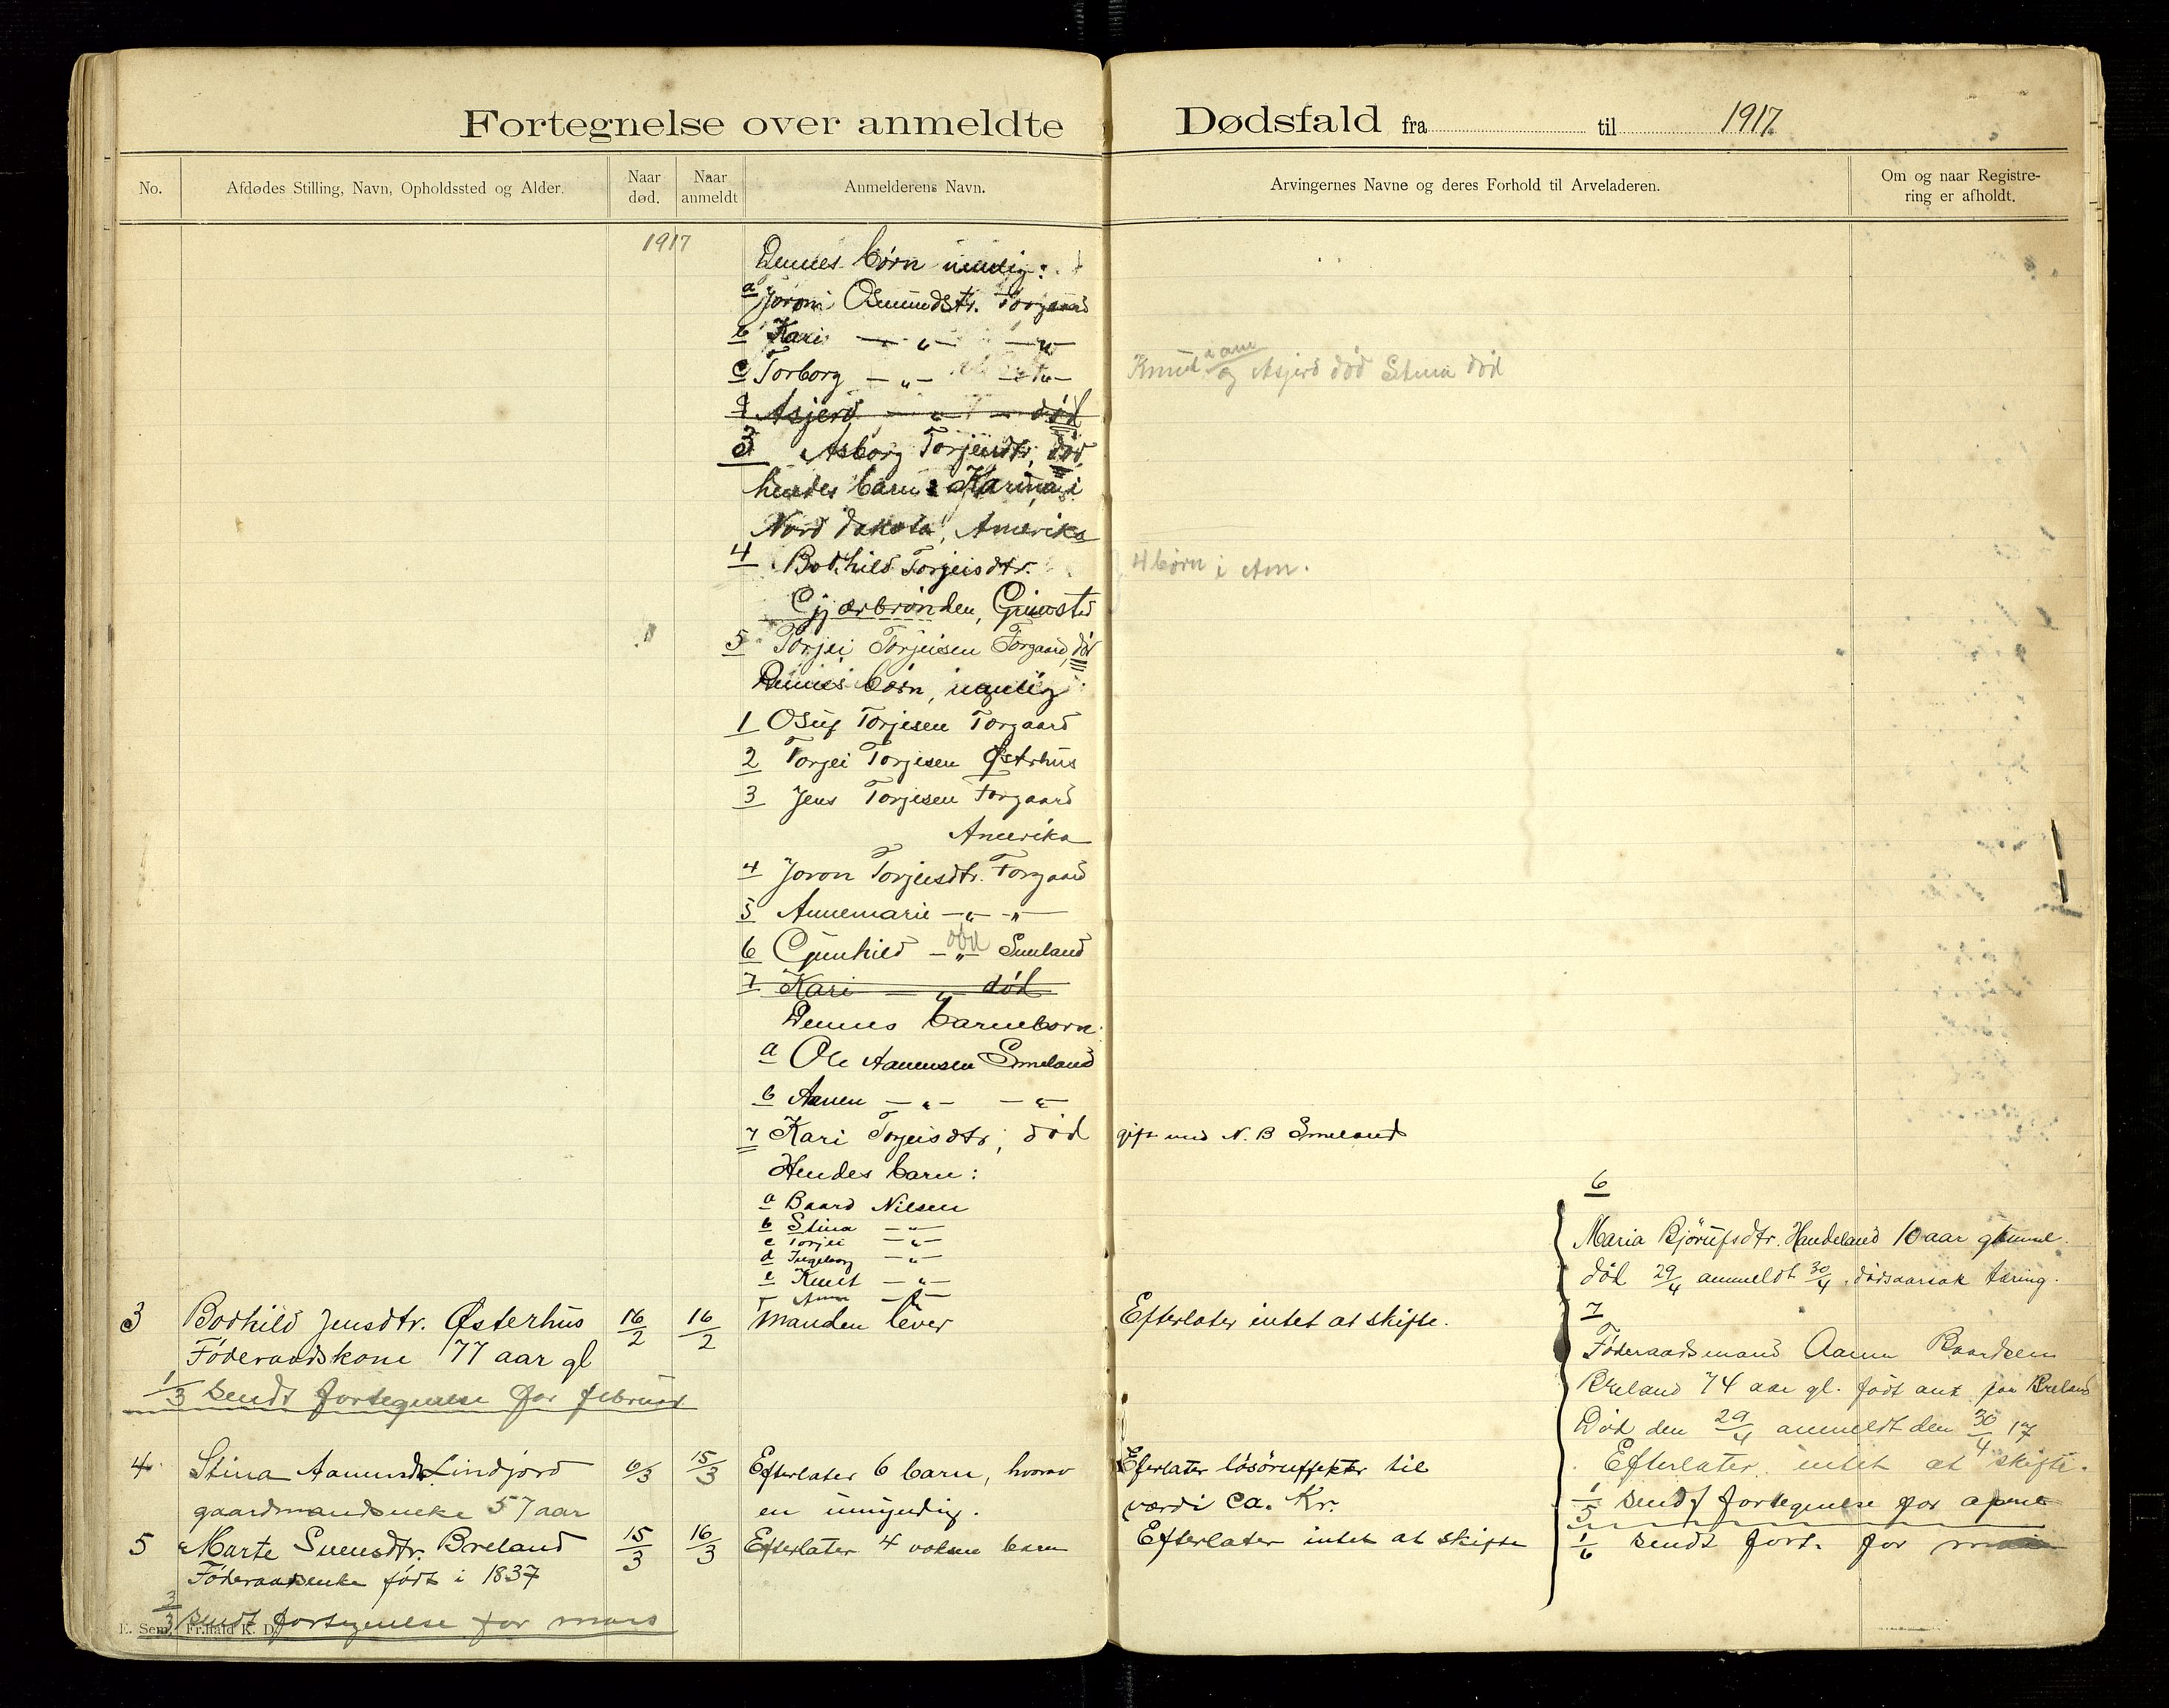 Fortegnelse over anmeldte Dødsfald fra til 1917.
No.
Afdødes Stilling, Navn, Opholdssted og Alder.
Naar død.
Naar anmeldt
Anmelderens Navn.
Arvingernes Navne og deres Forhold til Arveladeren.
Om og naar Registre-
ring er afholdt.
1917
Dennes børn nemlig:
a Joron Osmundstr. Torgaard
b Kari — " — — " —
c Torborg — " — — " —
Knud i am og Asjerd død Stina død
d Asjerd — " — død
3 Asborg Torjeisdtr, død,
hendes barn: Karina i
Nord Dakota, Amerika
4 Bothild Torjeisdtr.
4 børn i Am.
Gjærbrønden, Grimstad
5 Torjei Torjeisen Torgaard, død
Dennes børn, nemlig
1 Osuf Torjesen Torgaard
2 Torjei Torjesen Østrhus
3 Jens Torjesen Torgaard
Amerika
4 Joron Torjeisdtr. Torgaard
5 Annemarie — " — " —
6 Gunhild — " — død Smeland
7 Kari — " — død
Dennes barnebørn
a Ole Aanensen Smeland
b Aanen — " — — " —
7 Kari Torjeisdtr, død
gift med N. B Smeland
Hendes barn:
a Baard Nilsen
b Stina — " —
c Torjei — " —
d Ingeborg — " —
e Knut — " —
3 Bodhild Jensdtr. Østerhus 16/2 16/2 Manden lever Efterlater intet at skifte.
Föderaadskone 77 aar gl
1/3 sendt fortegnelse for februar
4 Stina Aanensdtr. Lindjord 6/3 15/3 Efterlater 6 barn, hvorav Efterlater lösöreffekter til
gaardmandsenke 57 aar en umyndig. værdi ca. Kr.
5 Marte Svensdtr. Breland 15/3 16/3 Efterlater 4 voksne barn Efterlater intet at skifte
Föderaadsenke født i 1837
sendt fortegnelse for mars
E. Sem, Fr.hald K. D.
6
Maria Bjørufsdtr. Handeland 10 aar gammel.
död 29/4 anmeldt 30/4. dødsaarsak tæring.
7
Föderaadsmand Aanen Baardsen
Breland 74 aar gl. født paa Breland
Död den 29/4 anmeldt den 30/4 17
Efterlater intet at skifte.
1/5 sendt fortegnelse for april
1/6 sendt fort. for mai